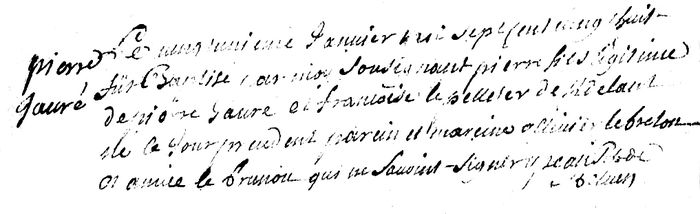 pierre
gauré
Le cinquieme Janvier mil sept cent vingt huit
fut Baptisé par moy Sousignant pierre fils légitime
de pierre gauré et francoise le pelleter de
de le jour precedent parein et mareine ollivier le breton
et amice le brunou qui ne savoint signer y